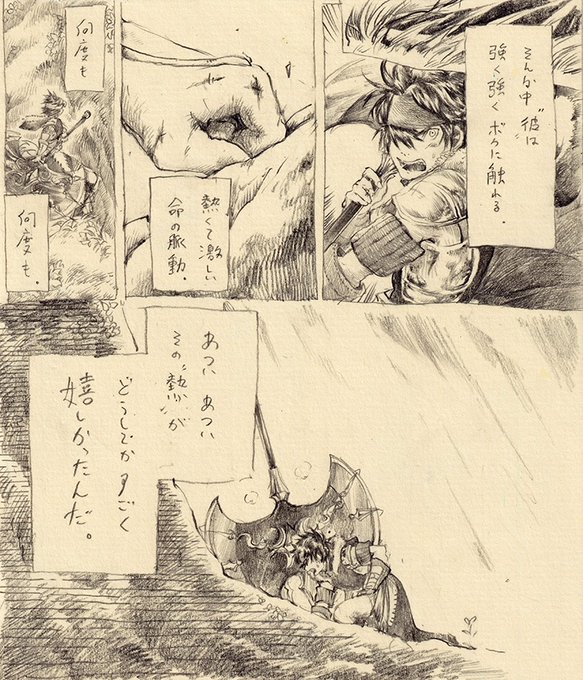 そんな中“彼”は
強く強く
ボクに触れる.
熱くて激しい
命の脈動.
何度も
何度も.
あつい あつい
その“熱”が
どうしてかすごく
嬉しかったんだ。